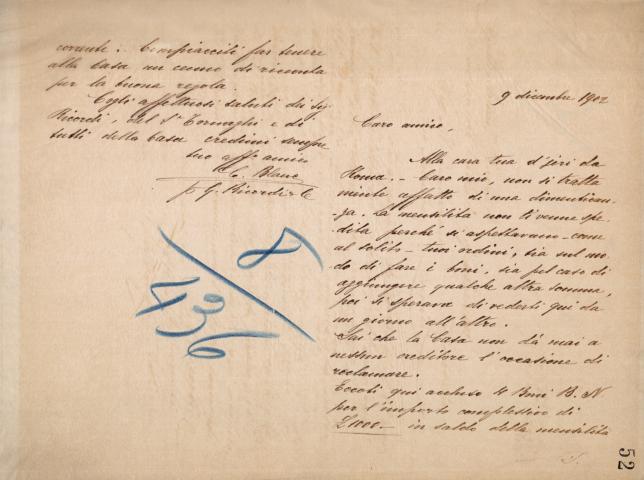 9 dicembre 1902
Caro amico,
Alla cara tua d'jeri da
Roma. - Caro mio, non si tratta
mente affatto di una dimentican-
-za. La mensilità non ti venne spe-
dita perché si aspettavano - come
al solito - tuoi ordini, sia sul mo-
do di fare i boni, sia pel caso di
aggiungere qualche altra somma,
poi si sperava di vederti qui da
un giorno all'altro.
Sai che la Casa non dà mai a
nessun creditore l'occasione di
reclamare.
Eccoti qui accluso 4 Boni B. N.
per l'importo complessivo di
£1000.- in saldo della mensilità
52
corrente. Compiacciti far tenere
alla Casa un cenno di ricevuta
per la buona regola.
Cogli affettuosi saluti dei Sigi
Ricordi, del Sr Tornaghi e di
tutti della Casa credimi sempre
tuo affo amico
C. Blanc
p. G. Ricordi & C